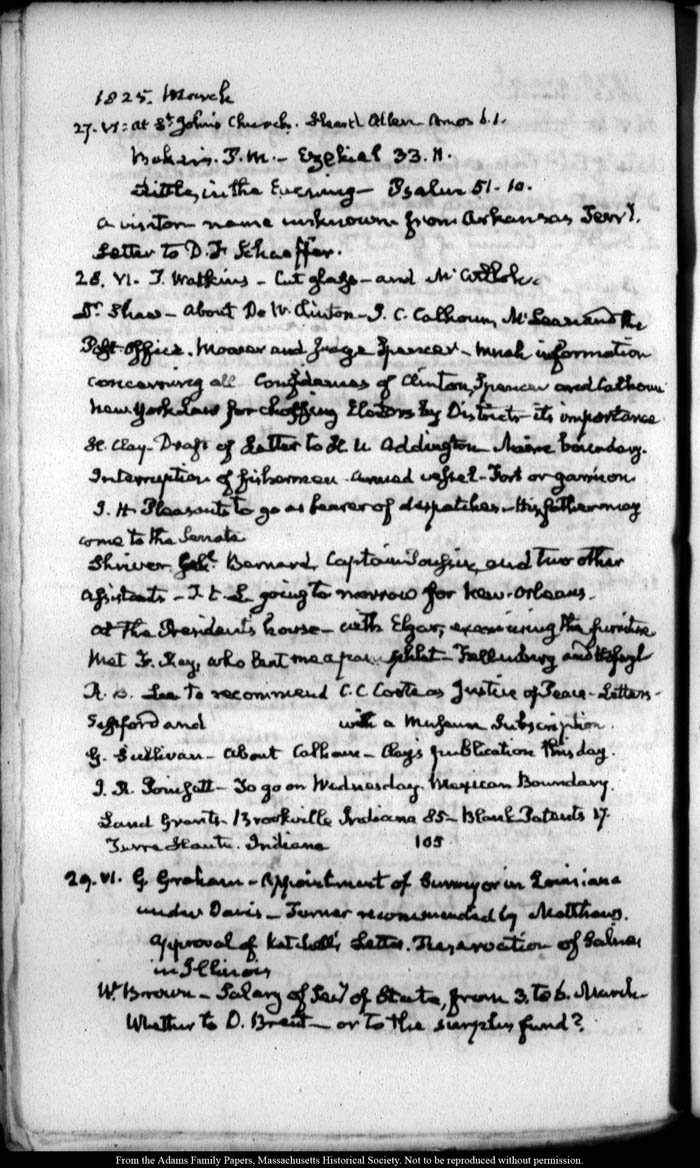 1825. March
27. VI: at St. John's Church. Heard Allen Amos 6.1.
Baker. P.M. — Ezekiel 33.11.
Little, in the Evening — Psalm 51.10.
A visitor name unknown from Arkansas Terry.
Letter to D. F. Schaeffer.
28. VI. T. Watkins — Cut glass — and McCulloh.
Dr. Shaw — About De W. Clinton — J. C. Calhoun, McLean and the
Post-Office. and Judge Spencer — much information
concerning all. of Clinton, Spencer and Calhoun
New York Law for choosing Electors by Districts its importance
H. Clay — Draft of Letter to H. U. Addington Maine boundary.
Interruption of fishermen armed vessel — Fort or garrison
J. H. Pleasants to go as bearer of despatches — His father may
come to the Senate
Shriver, Genl. Bernard, Captain Poussin, and two other
Assistants — going to morrow for New-Orleans.
At the President's house — with Elgar, examining the furniture
Met F. Key, who lent me a pamphlet — Fellenberg and Hofwyl
R. B. Lee to recommend C. C. Coote as Justice of Peace — Letters —
and with a Museum Subscription.
G. Sullivan — About Calhoun — Clay's publication this day.
J. R. Poinsett — To go on Wednesday. Mexican Boundary.
Land Grants — Brookville Indiana 85 — Blank Patents 17.
Terre Haute. Indiana 105
29. VI. G. Graham — Appointment of Surveyor in Louisiana
under Davis — Turner recommended by Matthews.
Approval of Letter. Reservation of Salines
in Illinois
W. Brown — Salary of Secy of State, from 3. to 6. March
Whether to D. Brent — or to the surplus fund?
From the Adams Family Papers, Massachusetts Historical Society. Not to be reproduced without permission.